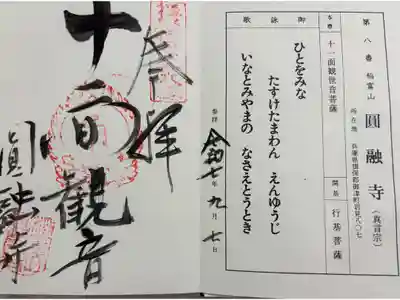 第八番 稲富山 圓融寺（真言宗）
所在地 兵庫県揖保郡御津町岩見八〇七
本尊 十一面観世音菩薩 開基 行基菩薩
御詠歌
ひとをみな
たすけたまわん えんゆうじ
いなとみやまの なさえとうとき
参拝 令和七年 九月 七日
奉拝
十一面観音
圓融寺